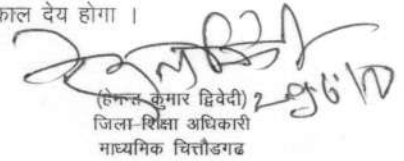 काल देय होगा ।
(हेमन्त कुमार द्विवेदी)
जिला शिक्षा अधिकारी
माध्यमिक चित्तौडगढ